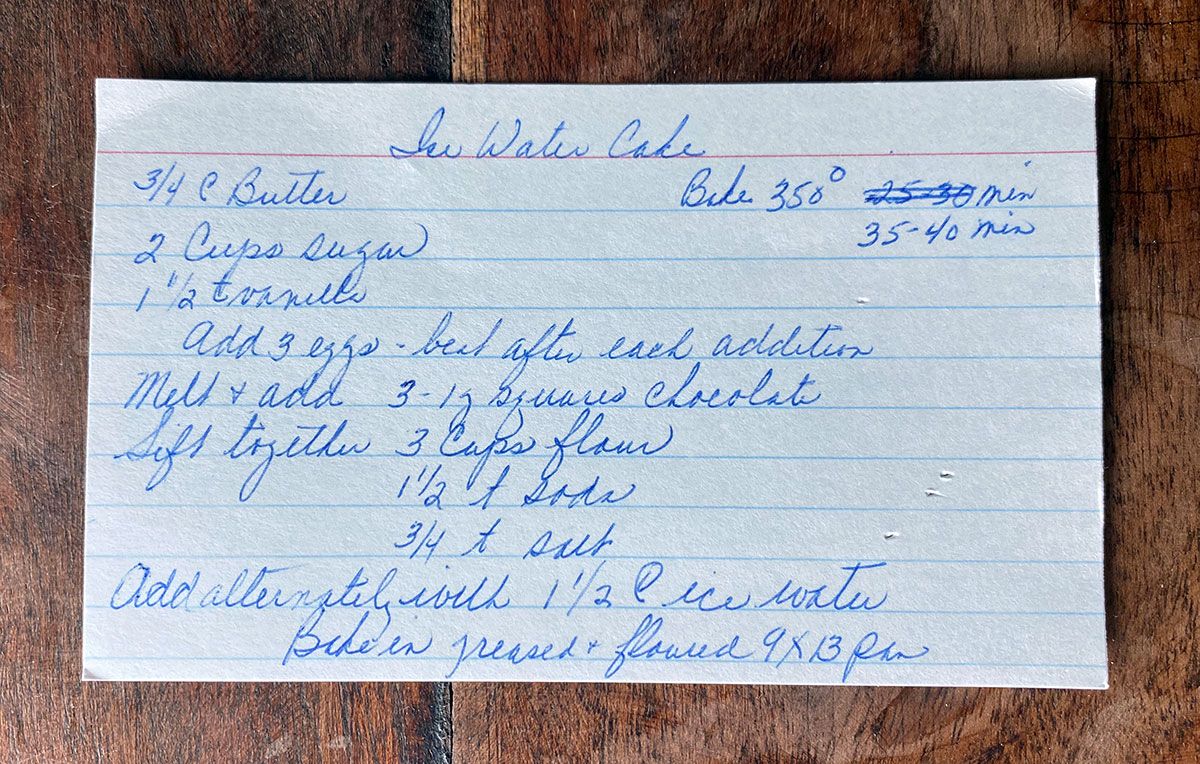 Ice Water Cake
3/4 C Butter Bake 350° 25-30 min
35-40 min
2 Cups sugar
1 1/2 t vanilla
Add 3 eggs - beat after each addition
Melt + add 3 - 1 squares chocolate
Sift together 3 Cups flour
1 1/2 t soda
3/4 t salt
Add alternately with 1 1/2 C ice water
Bake in greased + floured 9X13 pan